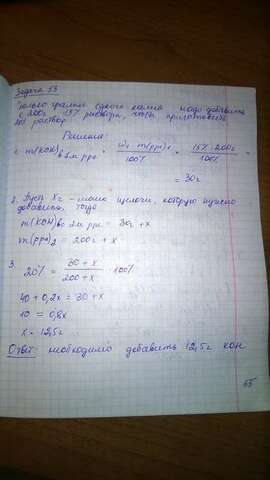 Задача 53
Сколько грамм едкого калия надо добавить
к 200г 15% раствора, чтобы приготовить
20% раствор
Решение:
1. m(KOH) в 1м рре = w₁ · m(рра)₁ / 100% = 15% · 200г / 100% =
= 30г
2. Пусть x г – масса щелочи, которую нужно
добавить, тогда
m(KOH) во 2м рре = 30г + x
m(рра)₂ = 200г + x
3.
20% = 30 + x / 200 + x · 100%
40 + 0,2x = 30 + x
10 = 0,8x
x = 12,5г
Ответ: необходимо добавить 12,5г KOH